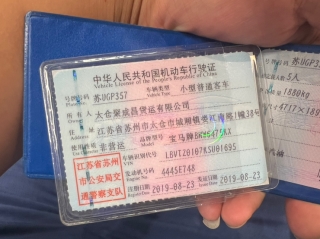 中华人民共和国机动车行驶证
Vehicle License of the People's Republic of China
号牌号码 苏UGP357 车辆类型 小型普通客车
Plate No. Vehicle Type
所有人 太仓聚成昌货运有限公司
Owner
住址 江苏省苏州市太仓市城厢镇 1幢38号
使用性质 非营运 宝马牌
Use Character
江苏省苏州市公安局交通警察支队
车辆识别代号
VIN
发动机号码 4445E748
Engine No.
注册日期 2019-08-23 发证日期 2019-08-23
5人
1880kg